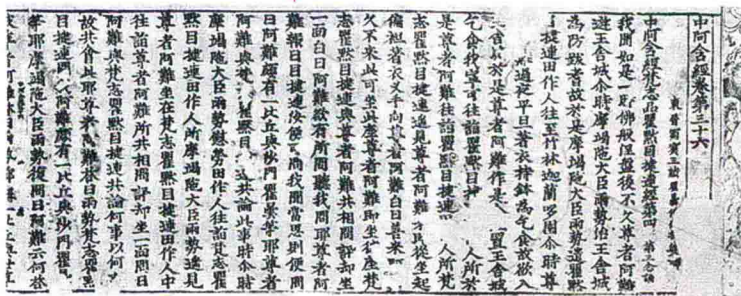 中阿含經卷第三十六
中阿含經梵志品瞿默目揵連經第四 第三念誦
我聞如是一時佛般涅槃後不久尊者阿難
遊王舍城尒時摩竭陁大臣雨勢治王舍城
為防跋耆故於是摩竭陁大臣雨勢遣瞿默
目揵連田作人往至竹林迦蘭哆園尒時尊
過夜平旦著衣持鉢為乞食故欲入
於是尊者阿難作是 置王舍城
乞食我寧可往詣瞿默目揵 人所於
是尊者阿難往詣瞿默目揵連 人所梵
志瞿默目揵連遙見尊者阿難 從坐起
偏袒著衣叉手向尊者阿難白曰善来
久不来此可坐此座尊者阿難即坐彼座梵
志瞿默目揵連與尊者阿難共相問訊却坐
一面白曰阿難欲有所問聽我問耶尊者阿
難報曰目揵連汝便可問我聞當思則便問
曰阿難頗有一比丘與沙門瞿曇等耶尊者
阿難與梵 瞿默目 連共論此事時尒時
摩竭陁大臣雨勢慰勞田作人往詣梵志瞿
默目揵連田作人所摩竭陁大臣雨勢遙見
尊者阿難坐在梵志瞿默目揵連田作人中
往詣尊者阿難所共相問訊却坐一面問曰
阿難與梵志瞿默目揵連共論何事以何
故共會此耶尊者阿難荅曰雨勢梵志瞿
目揵連問我阿難頗有一比丘與沙門瞿
等耶摩竭陁大臣雨勢復問曰阿難云何荅